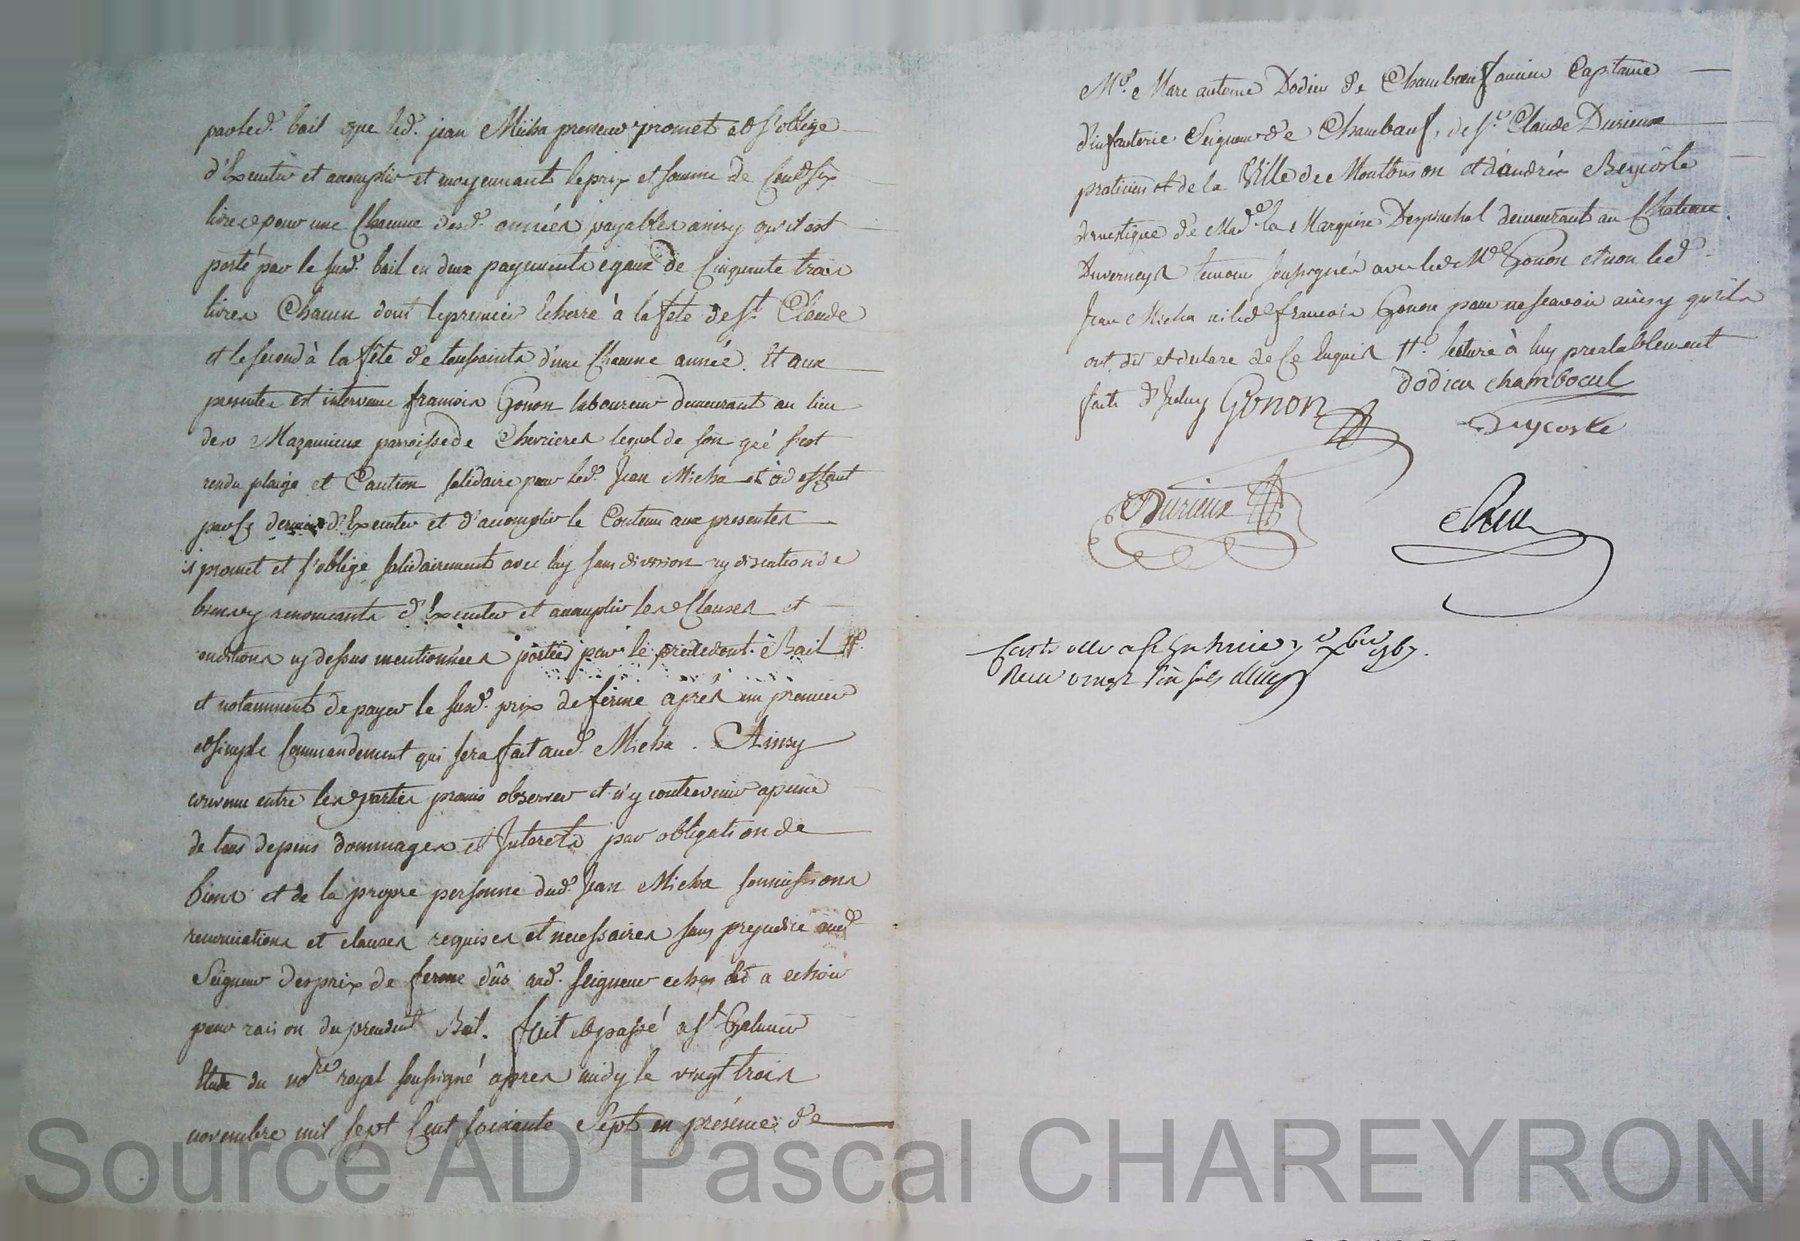 par led. bail que led. jean Micha preneur promet et s'oblige
d'Executer et accomplir et moyennant le prix et somme de Cent six
livres pour une Chacune desd. années payables ainsy qu'il est
porté par le susd. bail en deux payements egaux de Cinquante trois
livres Chacun dont le premier Echerra à la fête de St. Claude
et le second à la fête de toussaints d'une Chacune année. Et aux
presentes est intervenu francois Gonon laboureur demeurant au lieu
des Mazamieux parroisse de Chevrieres lequel de son gré s'est
rendu plaige et Caution solidaire pour led. Jean Micha et à deffaut
par ce dernier d'Executer et d'accomplir le Contenu aux presentes
il promet et s'oblige solidairement avec luy sans division ny discution de
biens y renonceants d'Executer et accomplir les Clauses et
conditions cy dessus mentionnées portées par le precedent Bail
et notamment de payer le susd. prix de ferme après un premier
et simple Commandement qui sera fait aud. Micha. Ainsy
convenu entre les parties promis observer et n'y contrevenir a peine
de tous depens dommages et Interets par obligation de
biens et de la propre personne dud. Jean Micha soumissions
renonciations et clauses requises et necessaires sans prejudice aud.
Seigneur des prix de ferme dûs aud. seigneur echus et a echoir
pour raison du precedent Bail. fait et passé a St Galmier
Etude du no.re royal soussigné apres midy le vingt trois
novembre mil sept Cent soixante Sept en présence de
Mr. Marc antoine Dodieu de Chambœuf ancien Capitaine
d'infanterie Seigneur de Chambœuf, de sr. Claude Durieux
praticien de la Ville de Montbrison et d'andré Beycoste
domestique de Mad.e la Marquise Despinchal demeurant au Chateau
Duverney temoins soussignés avec led. Me. Gonon et non led.
Jean Micha ni led. francois Gonon pour ne scavoir ainsy qu'ils
ont dit et declaré de Ce Enquis lecture à luy prealablement
faite Gonon dodieu chambœuf
Durieux